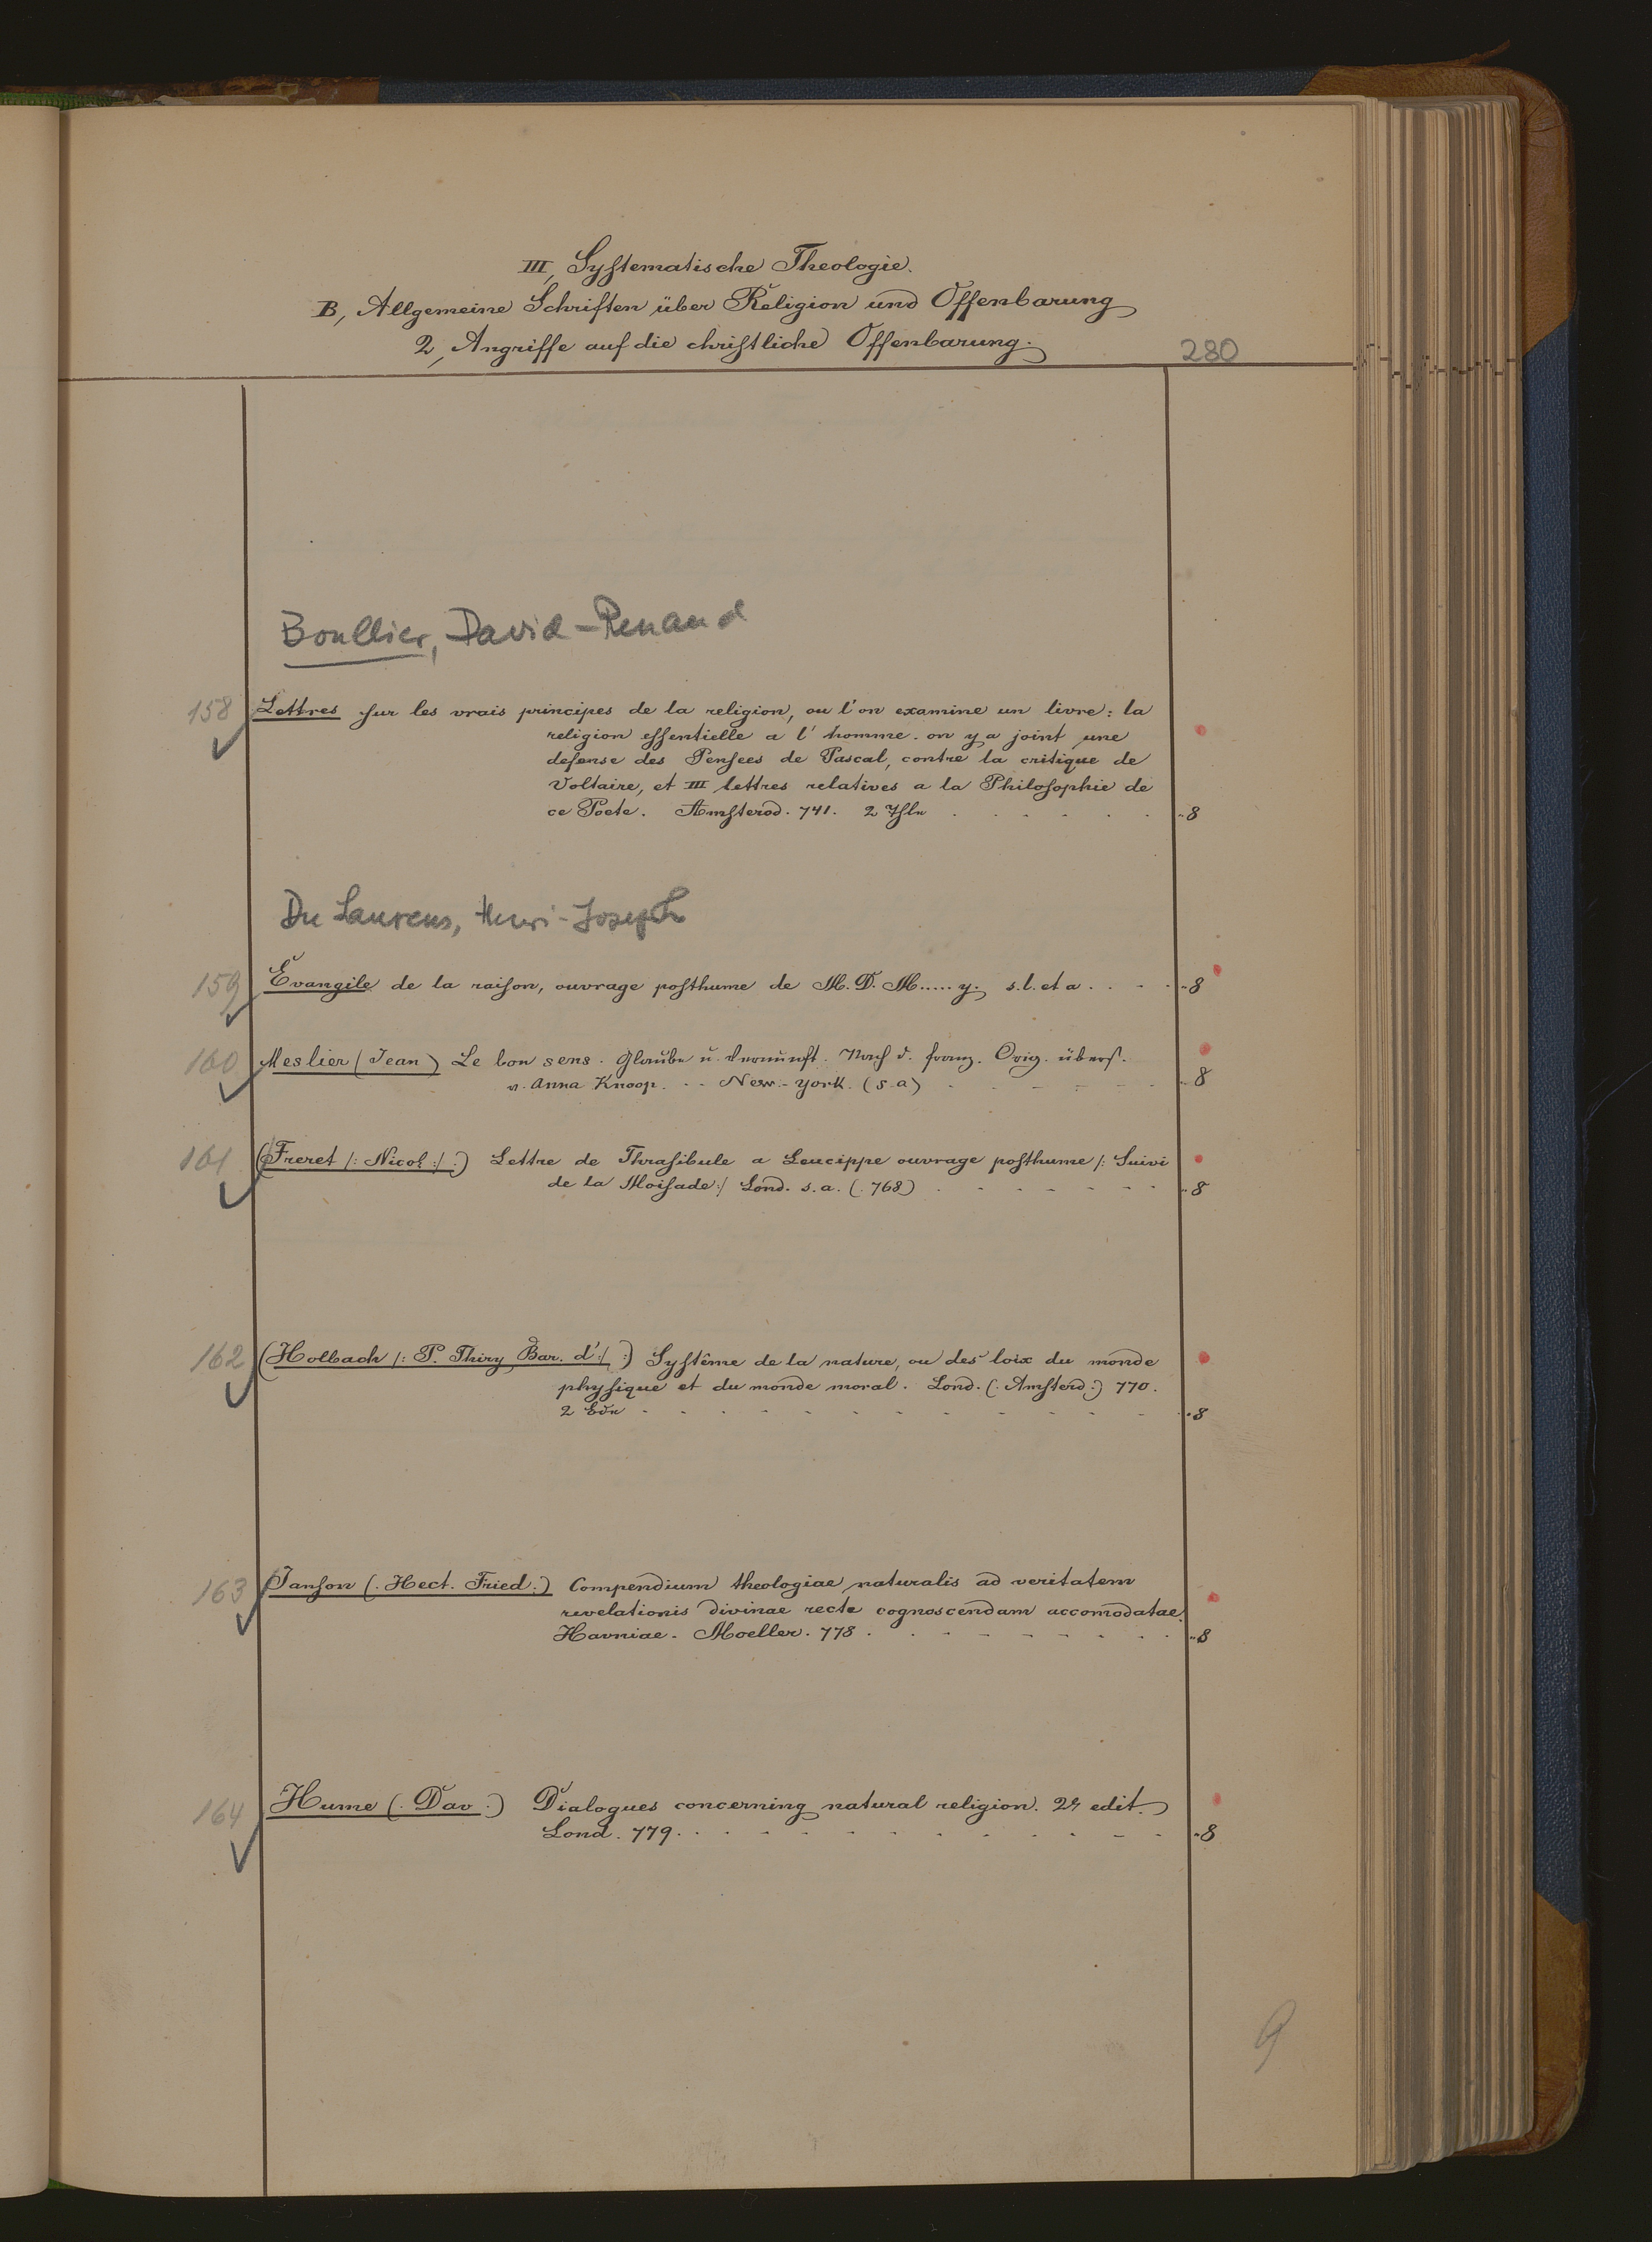 III, Systematische Theologie.
B, Allgemeine Schriften über Religion und Offenbarung
2, Angriffe auf die christliche Offenbarung.
280
Boullier, David-Renaud
158 Lettres sur les vrais principes de la religion, ou l'on examine un livre: la
religion essentielle a l'homme. on y a joint une
defense des Pensees de Pascal, contre la critique de
Voltaire, et III lettres relatives a la Philosophie de
ce Poete. Amsterod. 741. 2 Thle . . . . . . „8
Du Laurens, Henri-Joseph
159 Evangile de la raison, ouvrage posthume de M. D. M.....y. s. l. et a . . - . „8
160 Meslier (Jean) Le bon sens. Glaube u. Vernunft. Nach d. franz. Orig. übers.
v. Anna Knoop. - - New-York. (s. a) - - - - - - „8
161 (Freret /: Nicol: /:) Lettre de Thrasibule a Leucippe ouvrage posthume /: Suivi
de la Moisade :/ Lond. s. a. (. 768) . - - - - - - „8
162 (Holbach /: P. Thiry Bar. d' :/ :) Systême de la nature, ou des loix du monde
physique et du monde moral. Lond. (. Amsterd :) 770.
2 Bde - - - - - - - - - - - - „8
163 Janson (. Hect. Fried :) Compendium theologiae naturalis ad veritatem
revelationis divinae recte cognoscendam accomodatae.
Havniae. Moeller. 778 . . - - - - - - . „8
164 Hume (. Dav :) Dialogues concerning natural religion. 2d edit.
Lond. 779. . . - - - - - - - - - „8
9